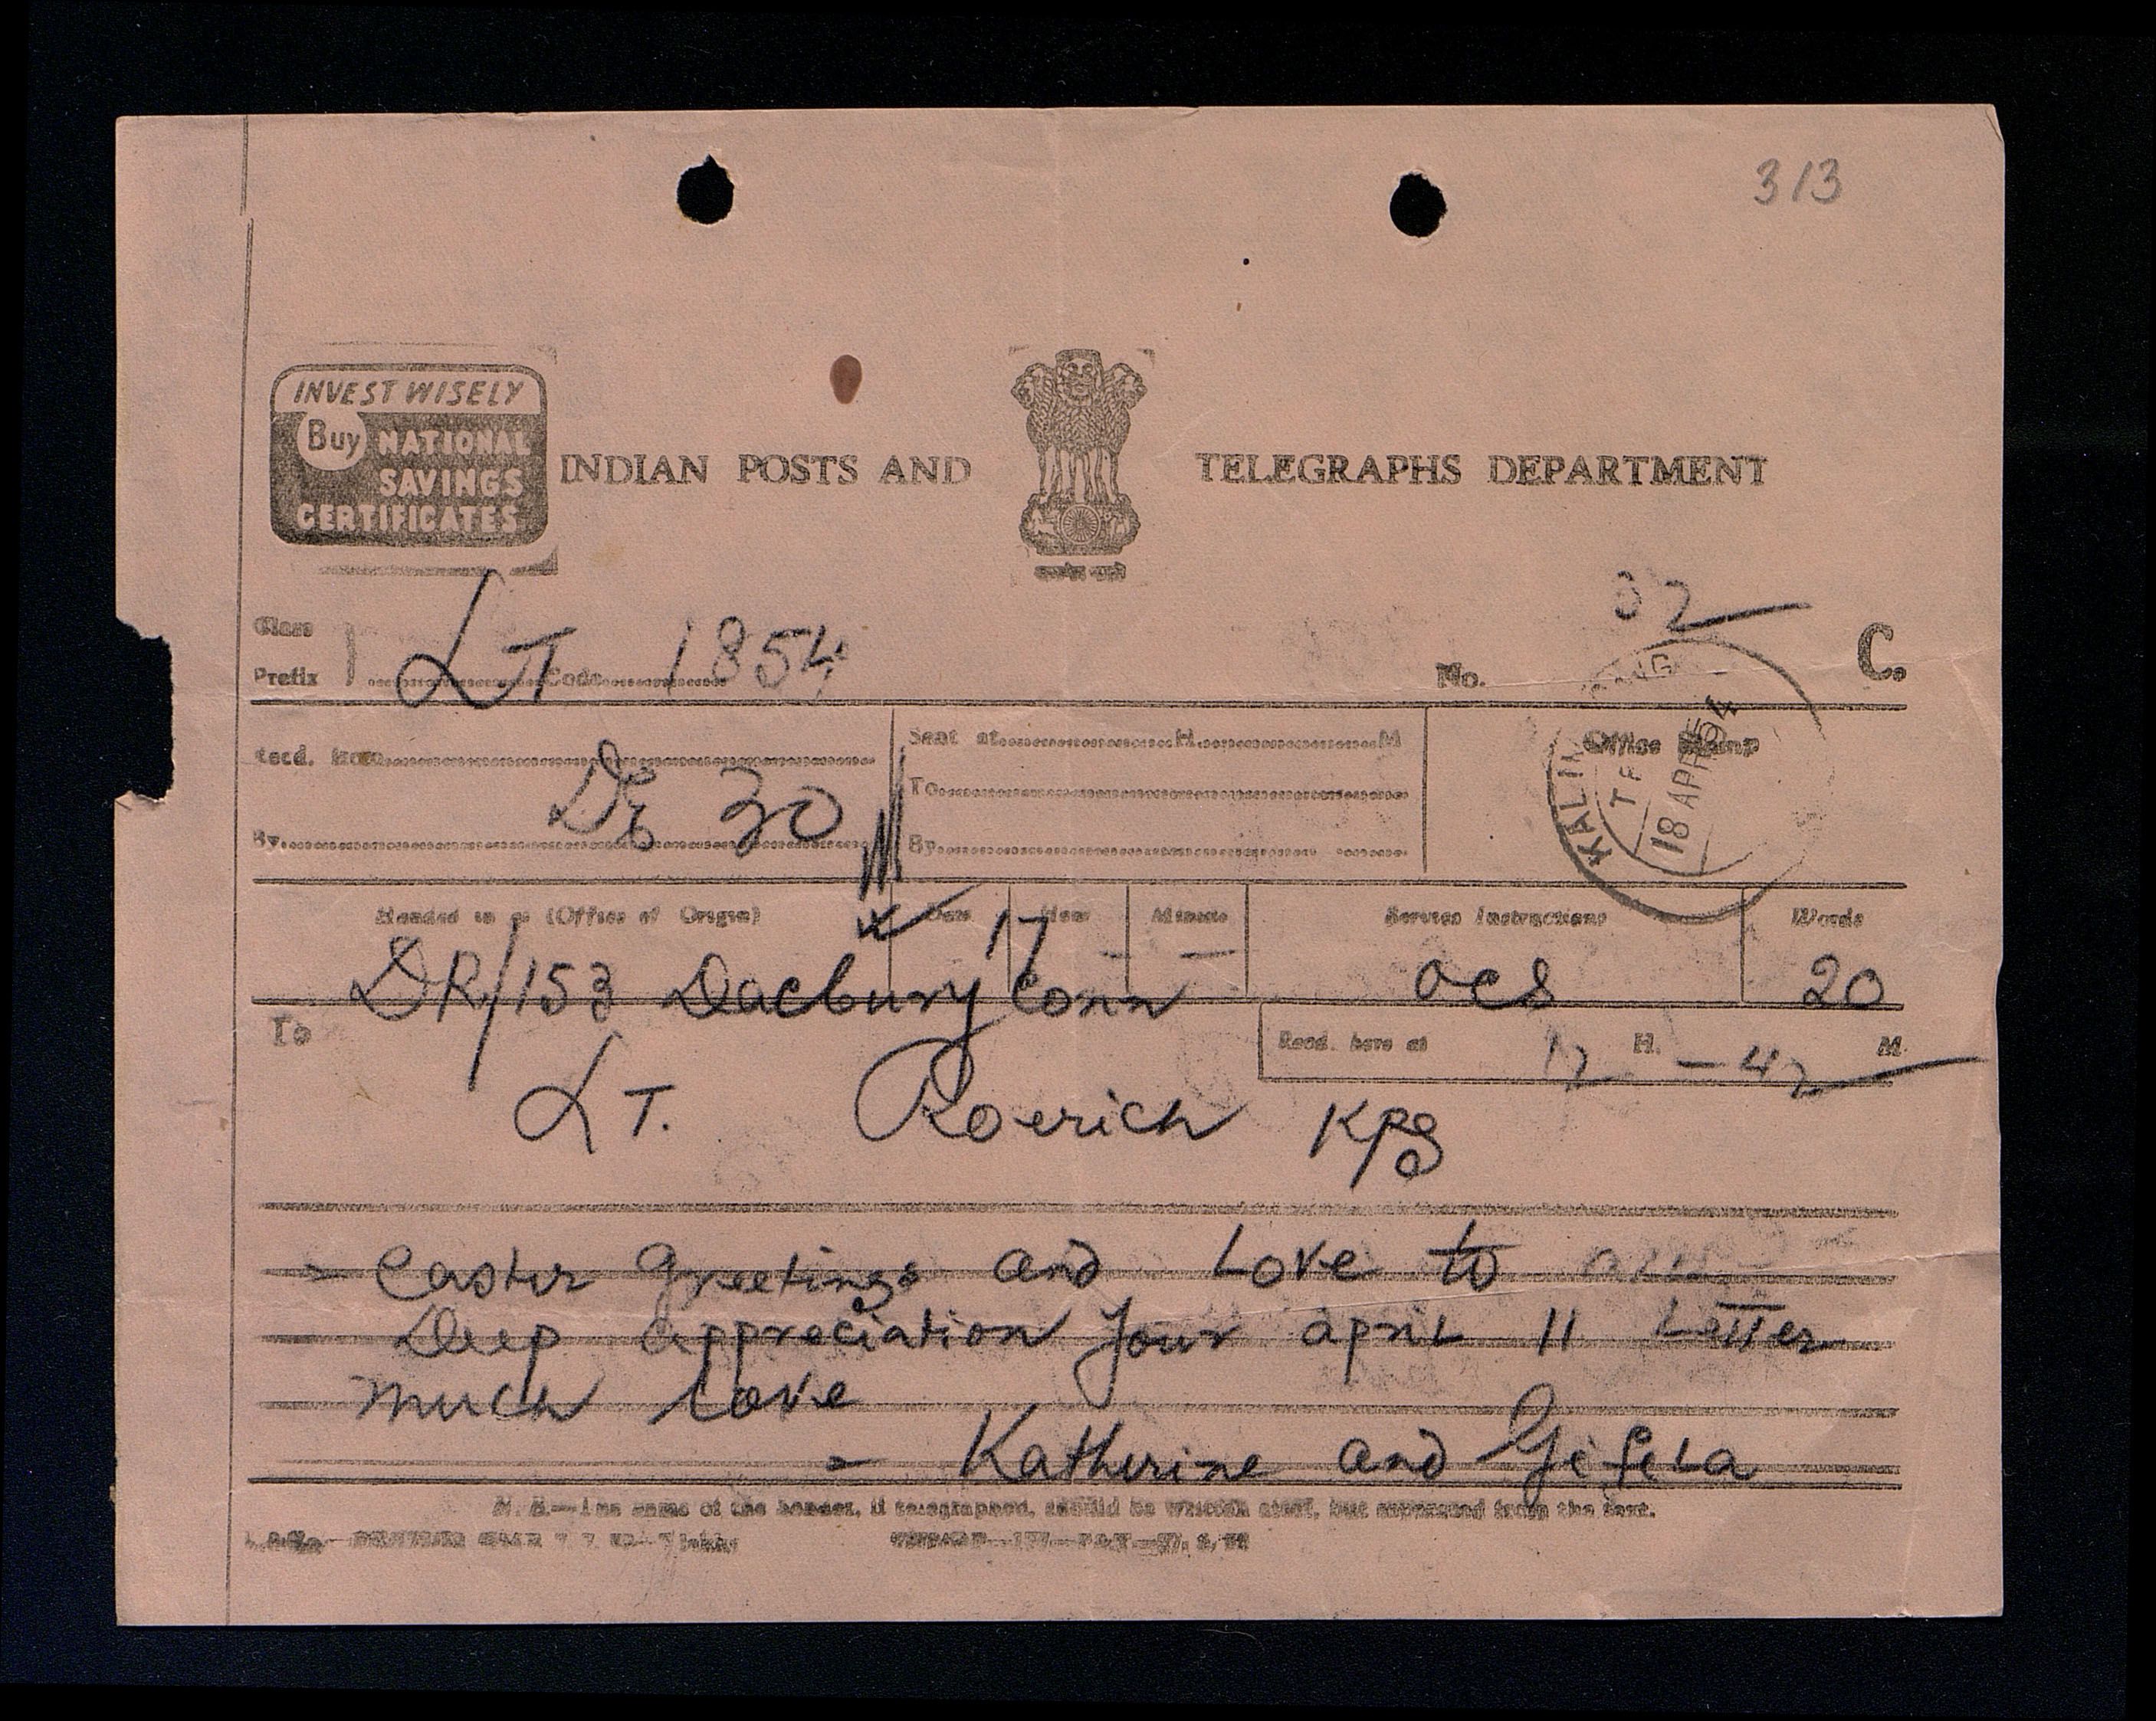 313
INVEST WISELY
Buy NATIONAL
SAVINGS
CERTIFICATES
INDIAN POSTS AND TELEGRAPHS DEPARTMENT
32
Class
Prefix LT Code 1854 No. C.
Recd. from Sent at H. M Office Stamp
To
Dr 30
By By
KALIM PONG
18 APR 54
Handed in at (Office of Origin) Date Hour Minute Service Instructions Words
17
DR/153 Dacbury Conn OCS 20
To Recd. here at 12 H. - 42 M.
LT. Roerich KPG
= Easter greetings and Love to
Deep appreciation your april 11 Letter
much love
= Katherine and Gisela
N. B.—The name of the Sender, if telegraphed, should be written after, but separated from the text.